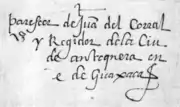 parestor de Jua del Corral
y Regidor dela Ciu
de antequera en
e de Guaxaca